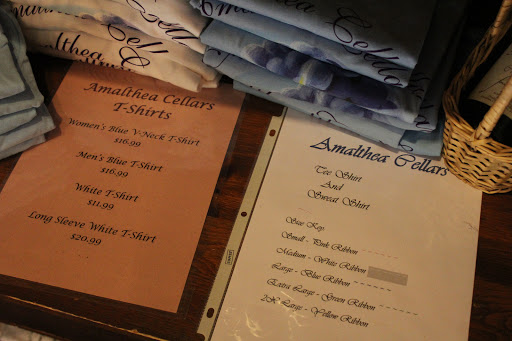 Amalthea Cellars
T-Shirts
Women's Blue V-Neck T-Shirt
$16.99
Men's Blue T-Shirt
$16.99
White T-Shirt
$11.99
Long Sleeve White T-Shirt
$20.99
Amalthea Cellars
Tee Shirt
And
Sweat Shirt
Size Key
Small - Pink Ribbon
Medium - White Ribbon
Large - Blue Ribbon
Extra Large - Green Ribbon
2X Large - Yellow Ribbon